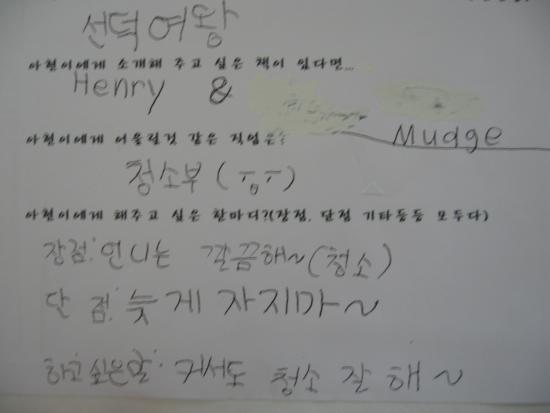 선덕여왕
아현이에게 소개해 주고 싶은 책이 있다면...
Henry &
Mudge
아현이에게 어울릴것 같은 직업은?
청소부 (ㅠㅠ)
아현이에게 해주고 싶은 한마디?(장점, 단점 기타등등 모두다)
장점: 언니는 깔끔해~(청소)
단 점: 늦게 자지마~
하고싶은말: 커서도 청소 잘 해~